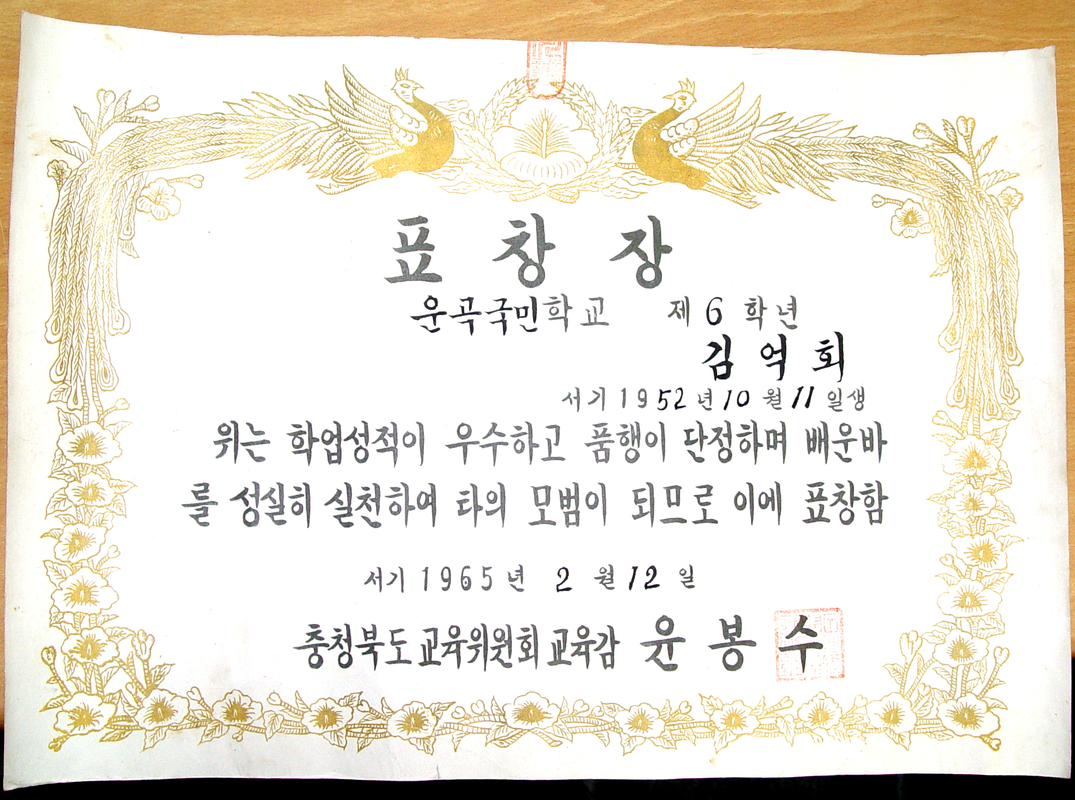 표창장
운곡국민학교 제 6 학년
김억회
서기 1952년 10월 11일생
위는 학업성적이 우수하고 품행이 단정하며 배운바
를 성실히 실천하여 타의 모범이 되므로 이에 표창함
서기 1965년 2월 12일
충청북도교육위원회교육감 윤봉수